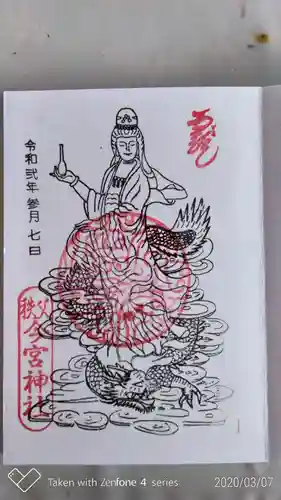 令和弐年参月七日
秩父今宮神社
Taken with Zenfone 4 series
2020/03/07